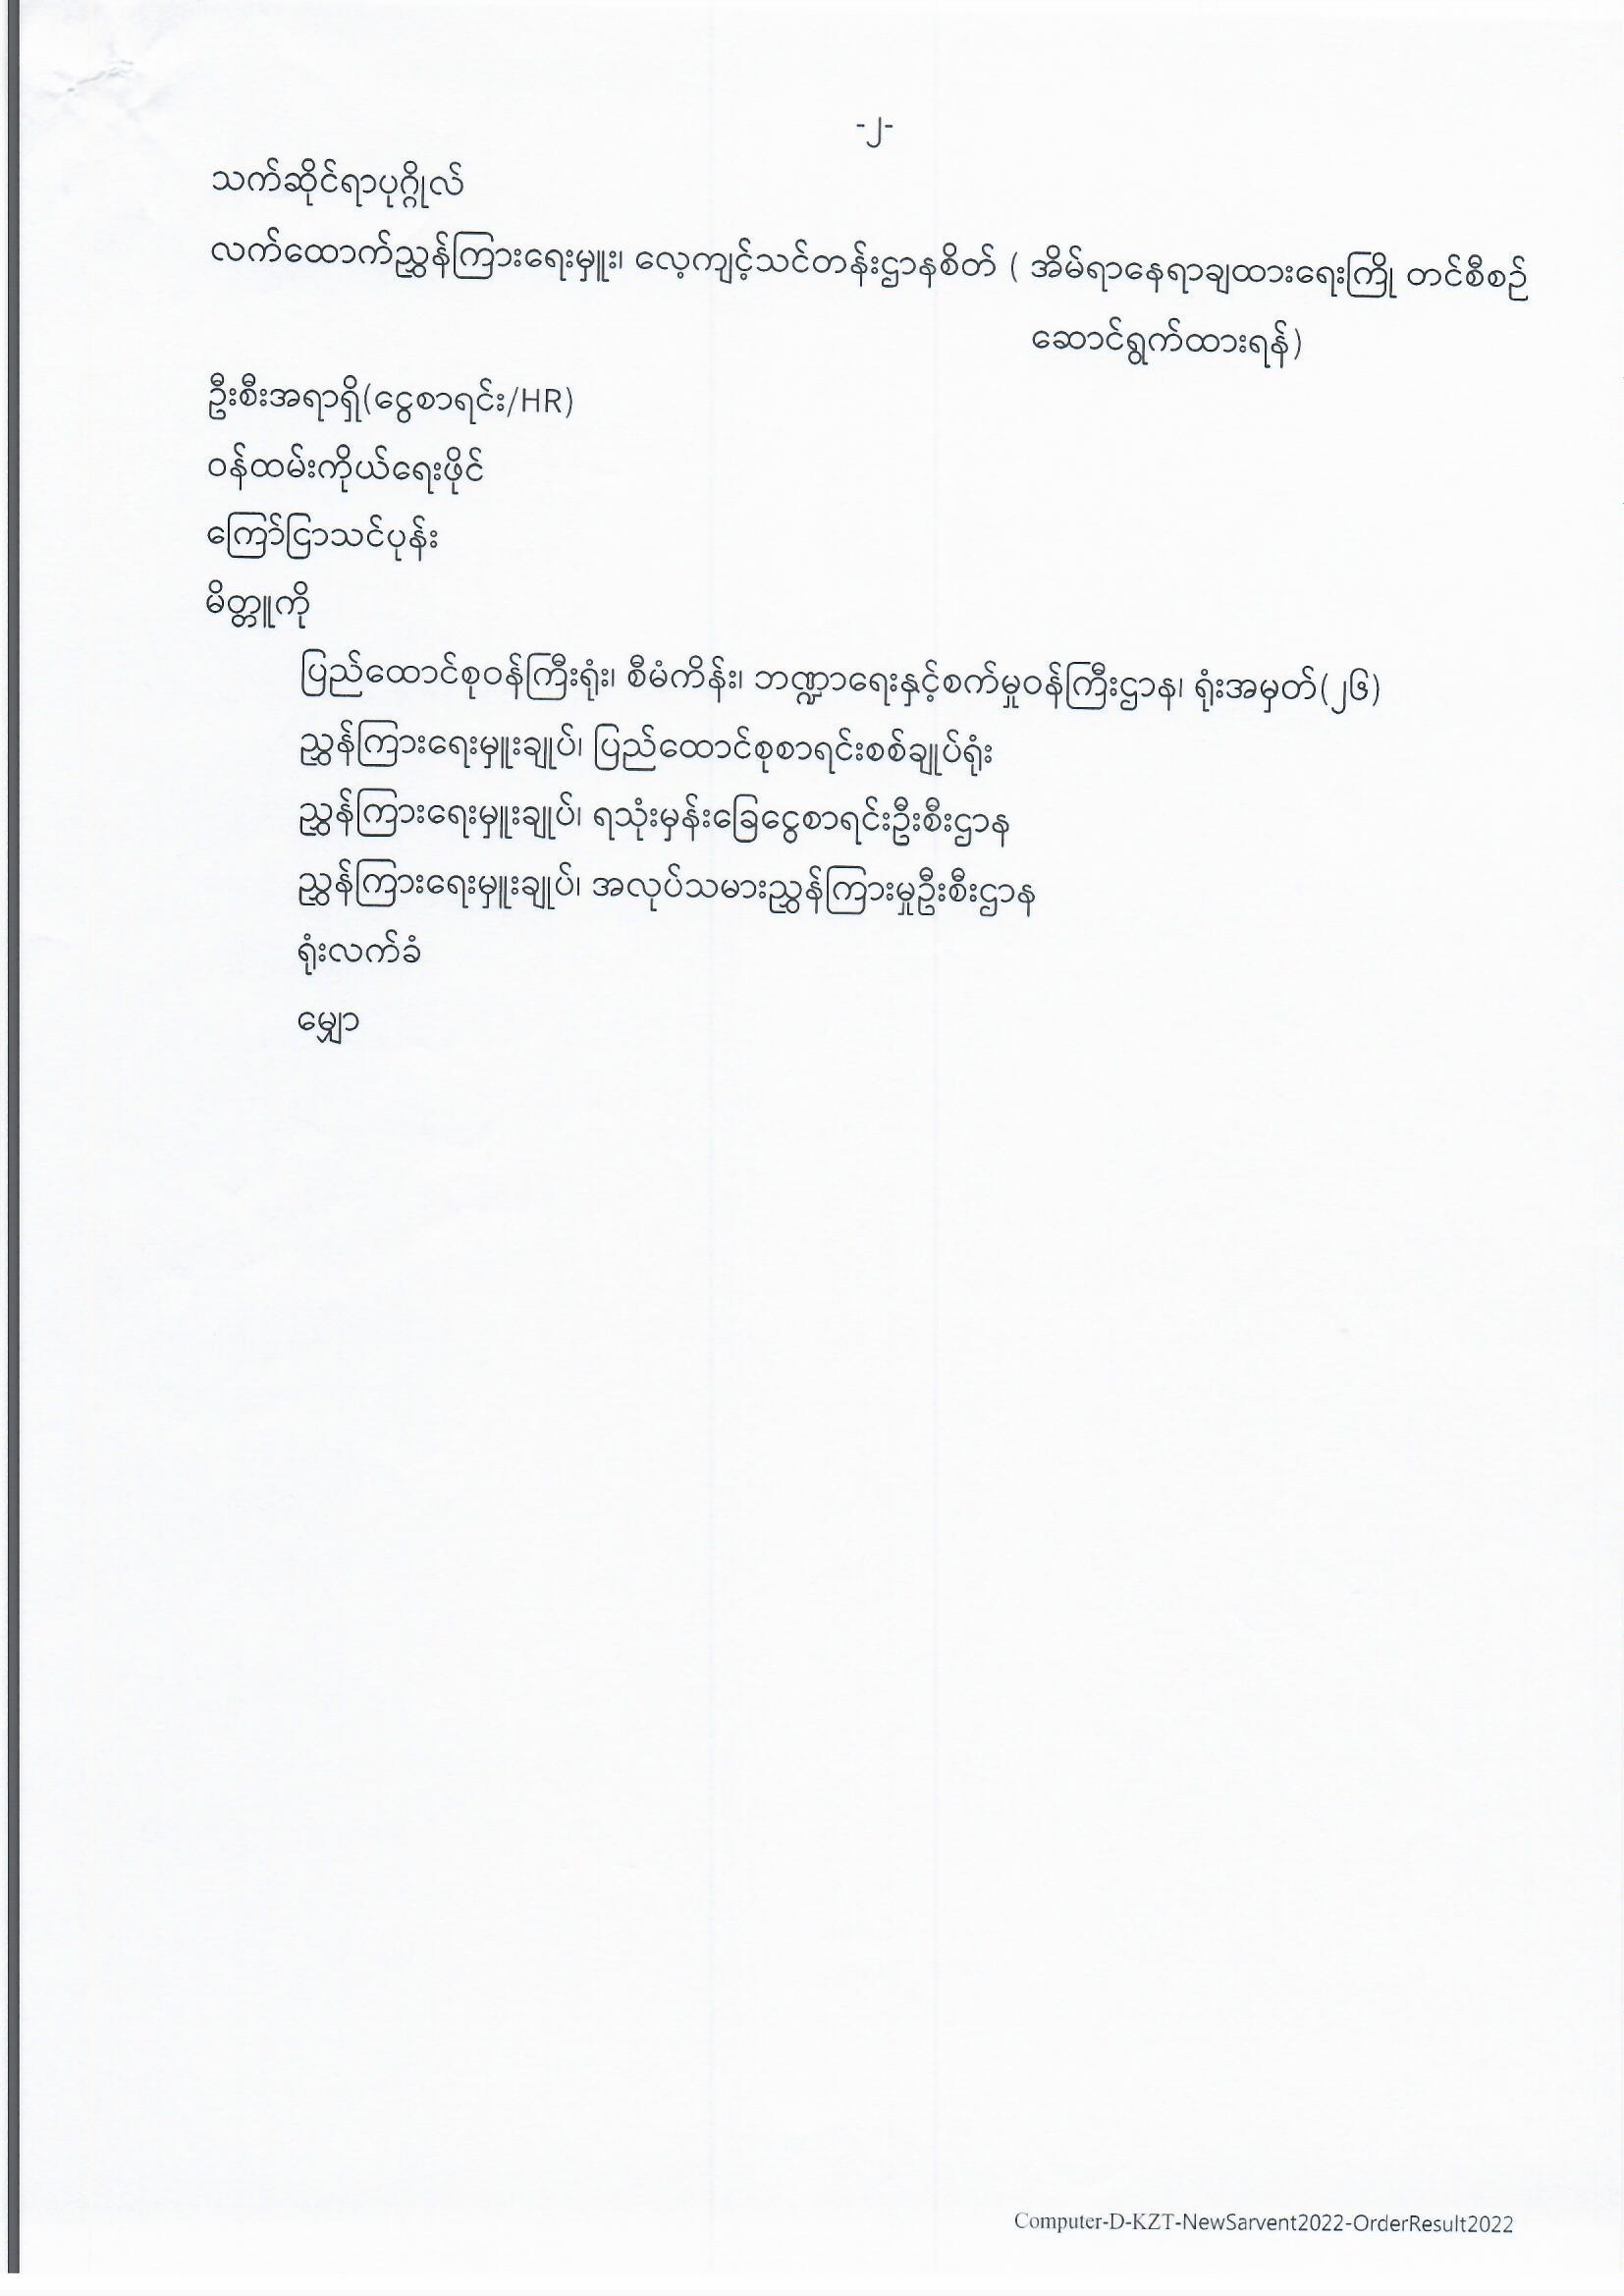 -၂-
သက်ဆိုင်ရာပုဂ္ဂိုလ်
လက်ထောက်ညွှန်ကြားရေးမှူး၊ လေ့ကျင့်သင်တန်းဌာနစိတ် ( အိမ်ရာနေရာချထားရေးကြို တင်စီစဉ်
ဆောင်ရွက်ထားရန်)
ဦးစီးအရာရှိ(ငွေစာရင်း/HR)
ဝန်ထမ်းကိုယ်ရေးဖိုင်
ကြော်ငြာသင်ပုန်း
မိတ္တူကို
ပြည်ထောင်စုဝန်ကြီးရုံး၊ စီမံကိန်း၊ ဘဏ္ဍာရေးနှင့်စက်မှုဝန်ကြီးဌာန၊ ရုံးအမှတ်(၂၆)
ညွှန်ကြားရေးမှူးချုပ်၊ ပြည်ထောင်စုစာရင်းစစ်ချုပ်ရုံး
ညွှန်ကြားရေးမှူးချုပ်၊ ရသုံးမှန်းခြေငွေစာရင်းဦးစီးဌာန
ညွှန်ကြားရေးမှူးချုပ်၊ အလုပ်သမားညွှန်ကြားမှုဦးစီးဌာန
ရုံးလက်ခံ
မျှော
Computer-D-KZT-NewSarvent2022-OrderResult2022